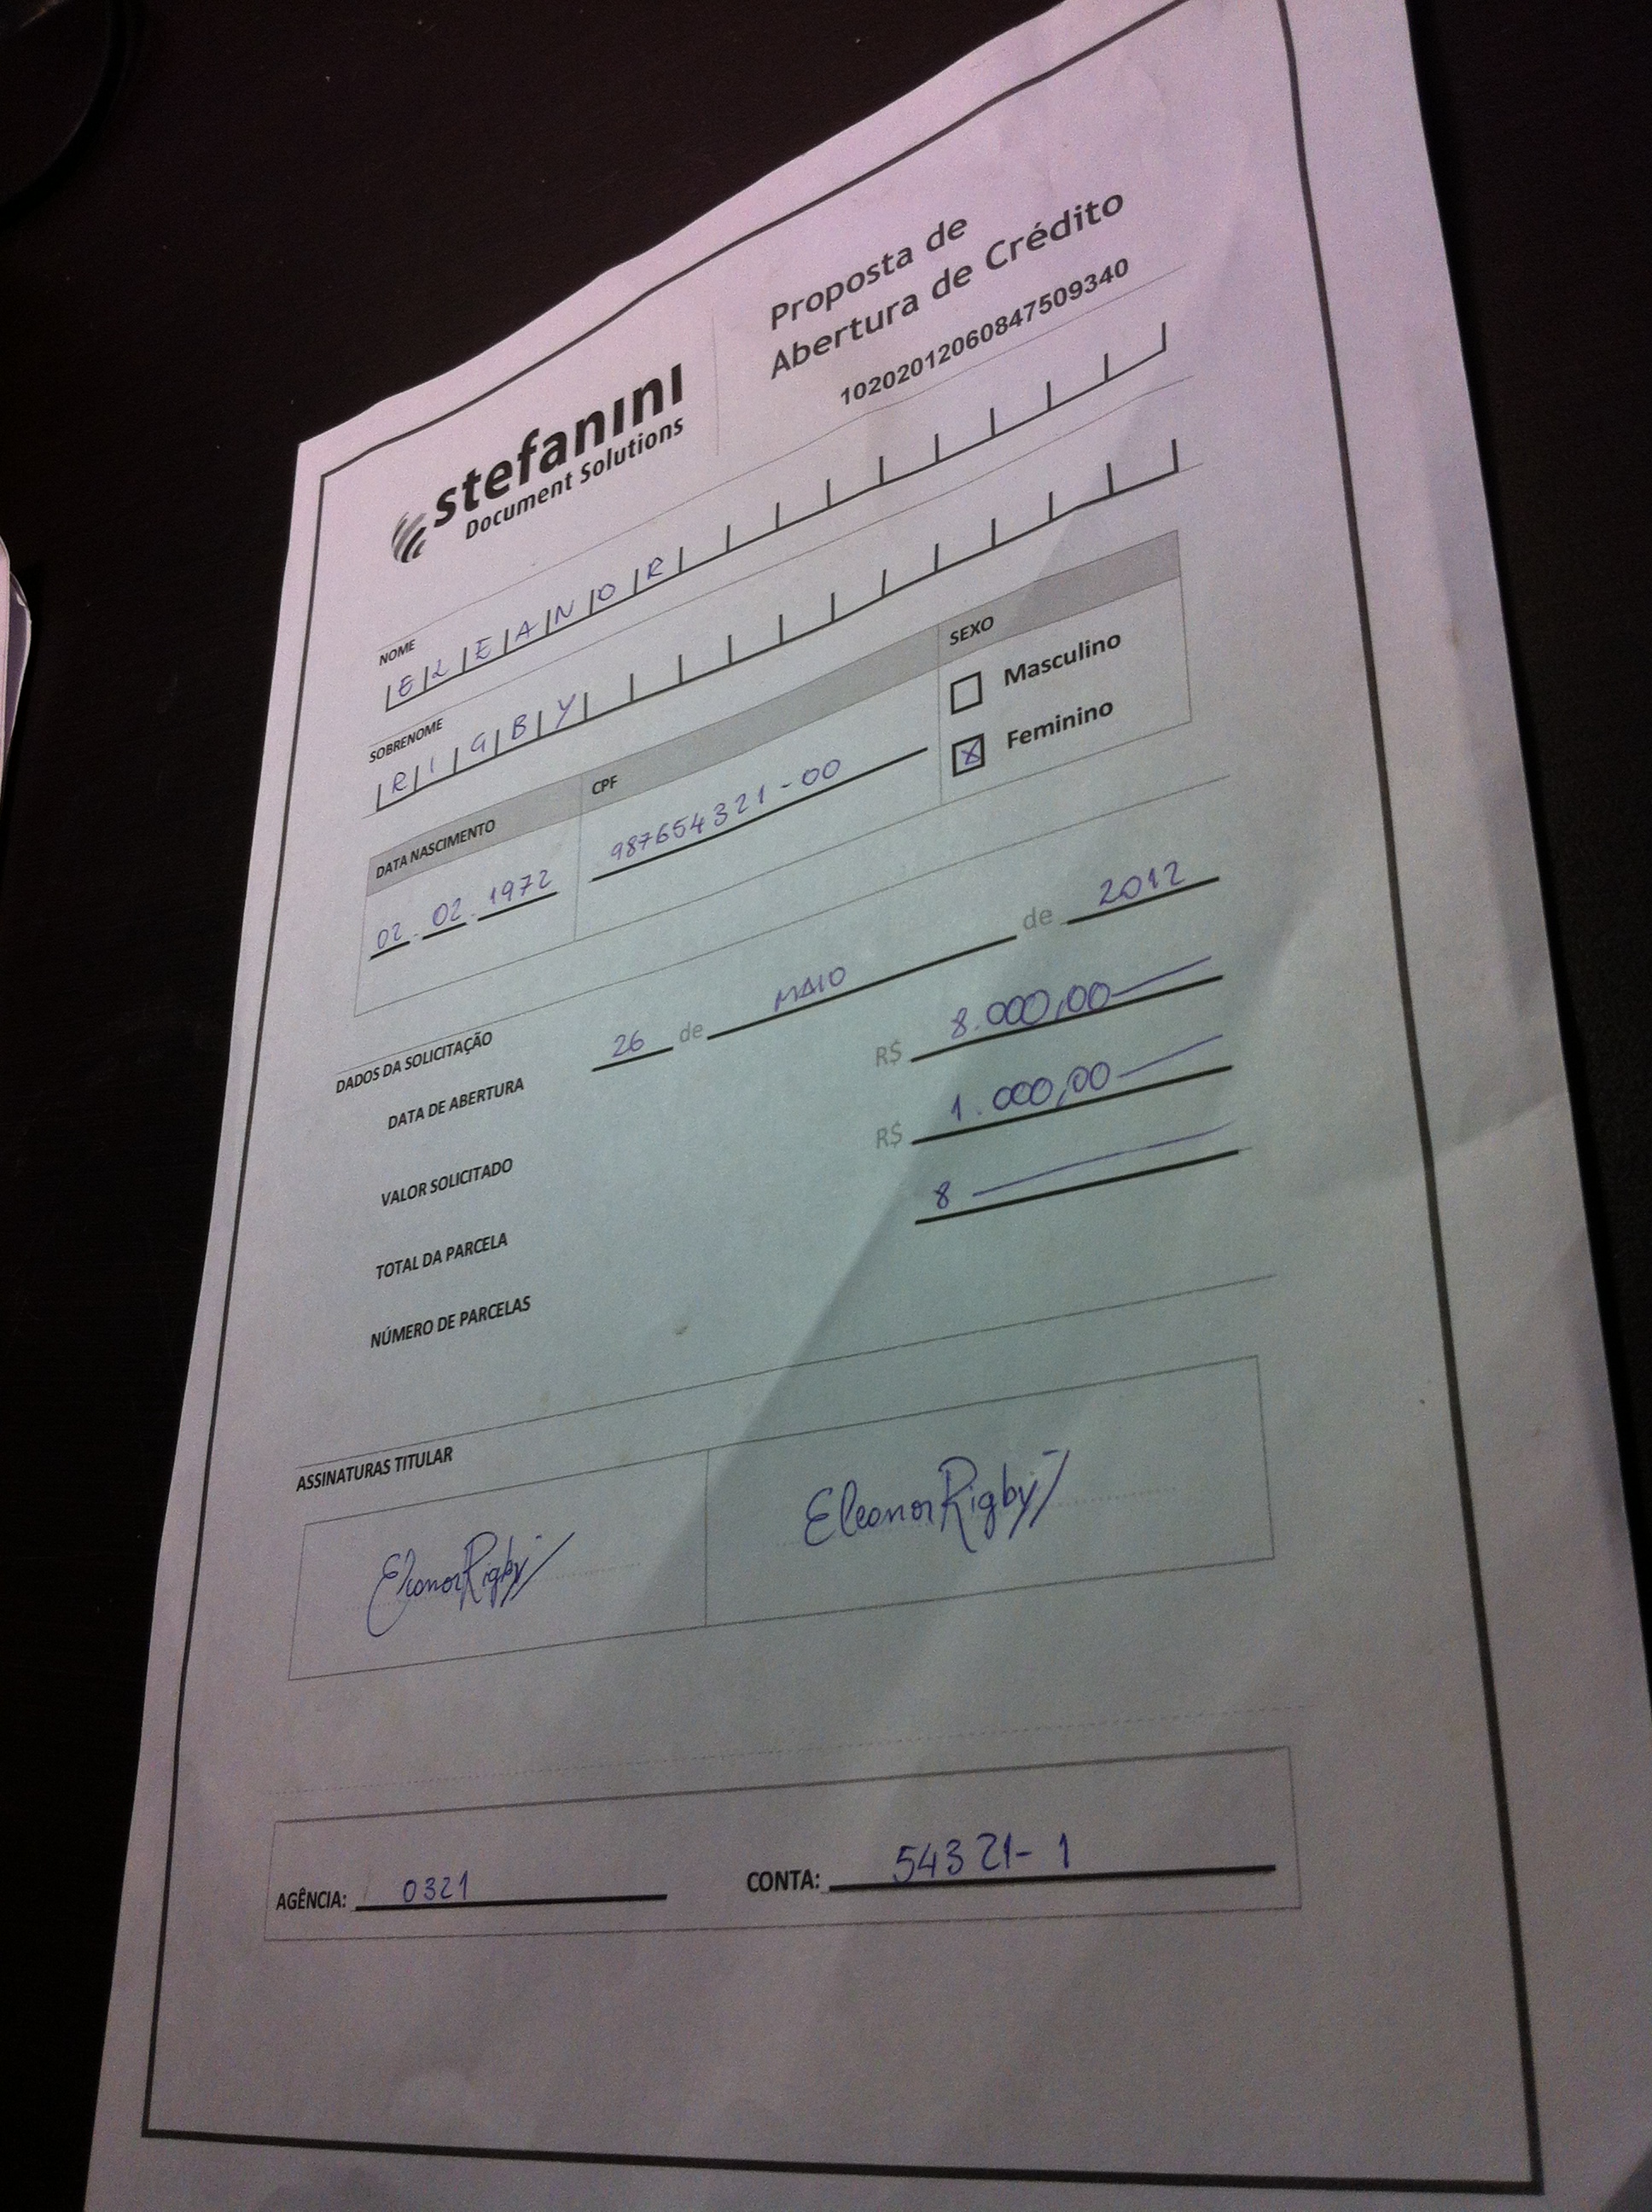 stefanini
Document Solutions
Proposta de
Abertura de Crédito
10202012060847509340
NOME
ELEANOR
SOBRENOME
RIGBY
DATA NASCIMENTO
02.02.1972
CPF
987654321-00
SEXO
Masculino
X Feminino
DADOS DA SOLICITAÇÃO
DATA DE ABERTURA 26 de MAIO de 2012
VALOR SOLICITADO R$ 8.000,00
TOTAL DA PARCELA R$ 1.000,00
NÚMERO DE PARCELAS 8
ASSINATURAS TITULAR
Eleanor Rigby Eleanor Rigby
AGÊNCIA: 0321 CONTA: 54321-1